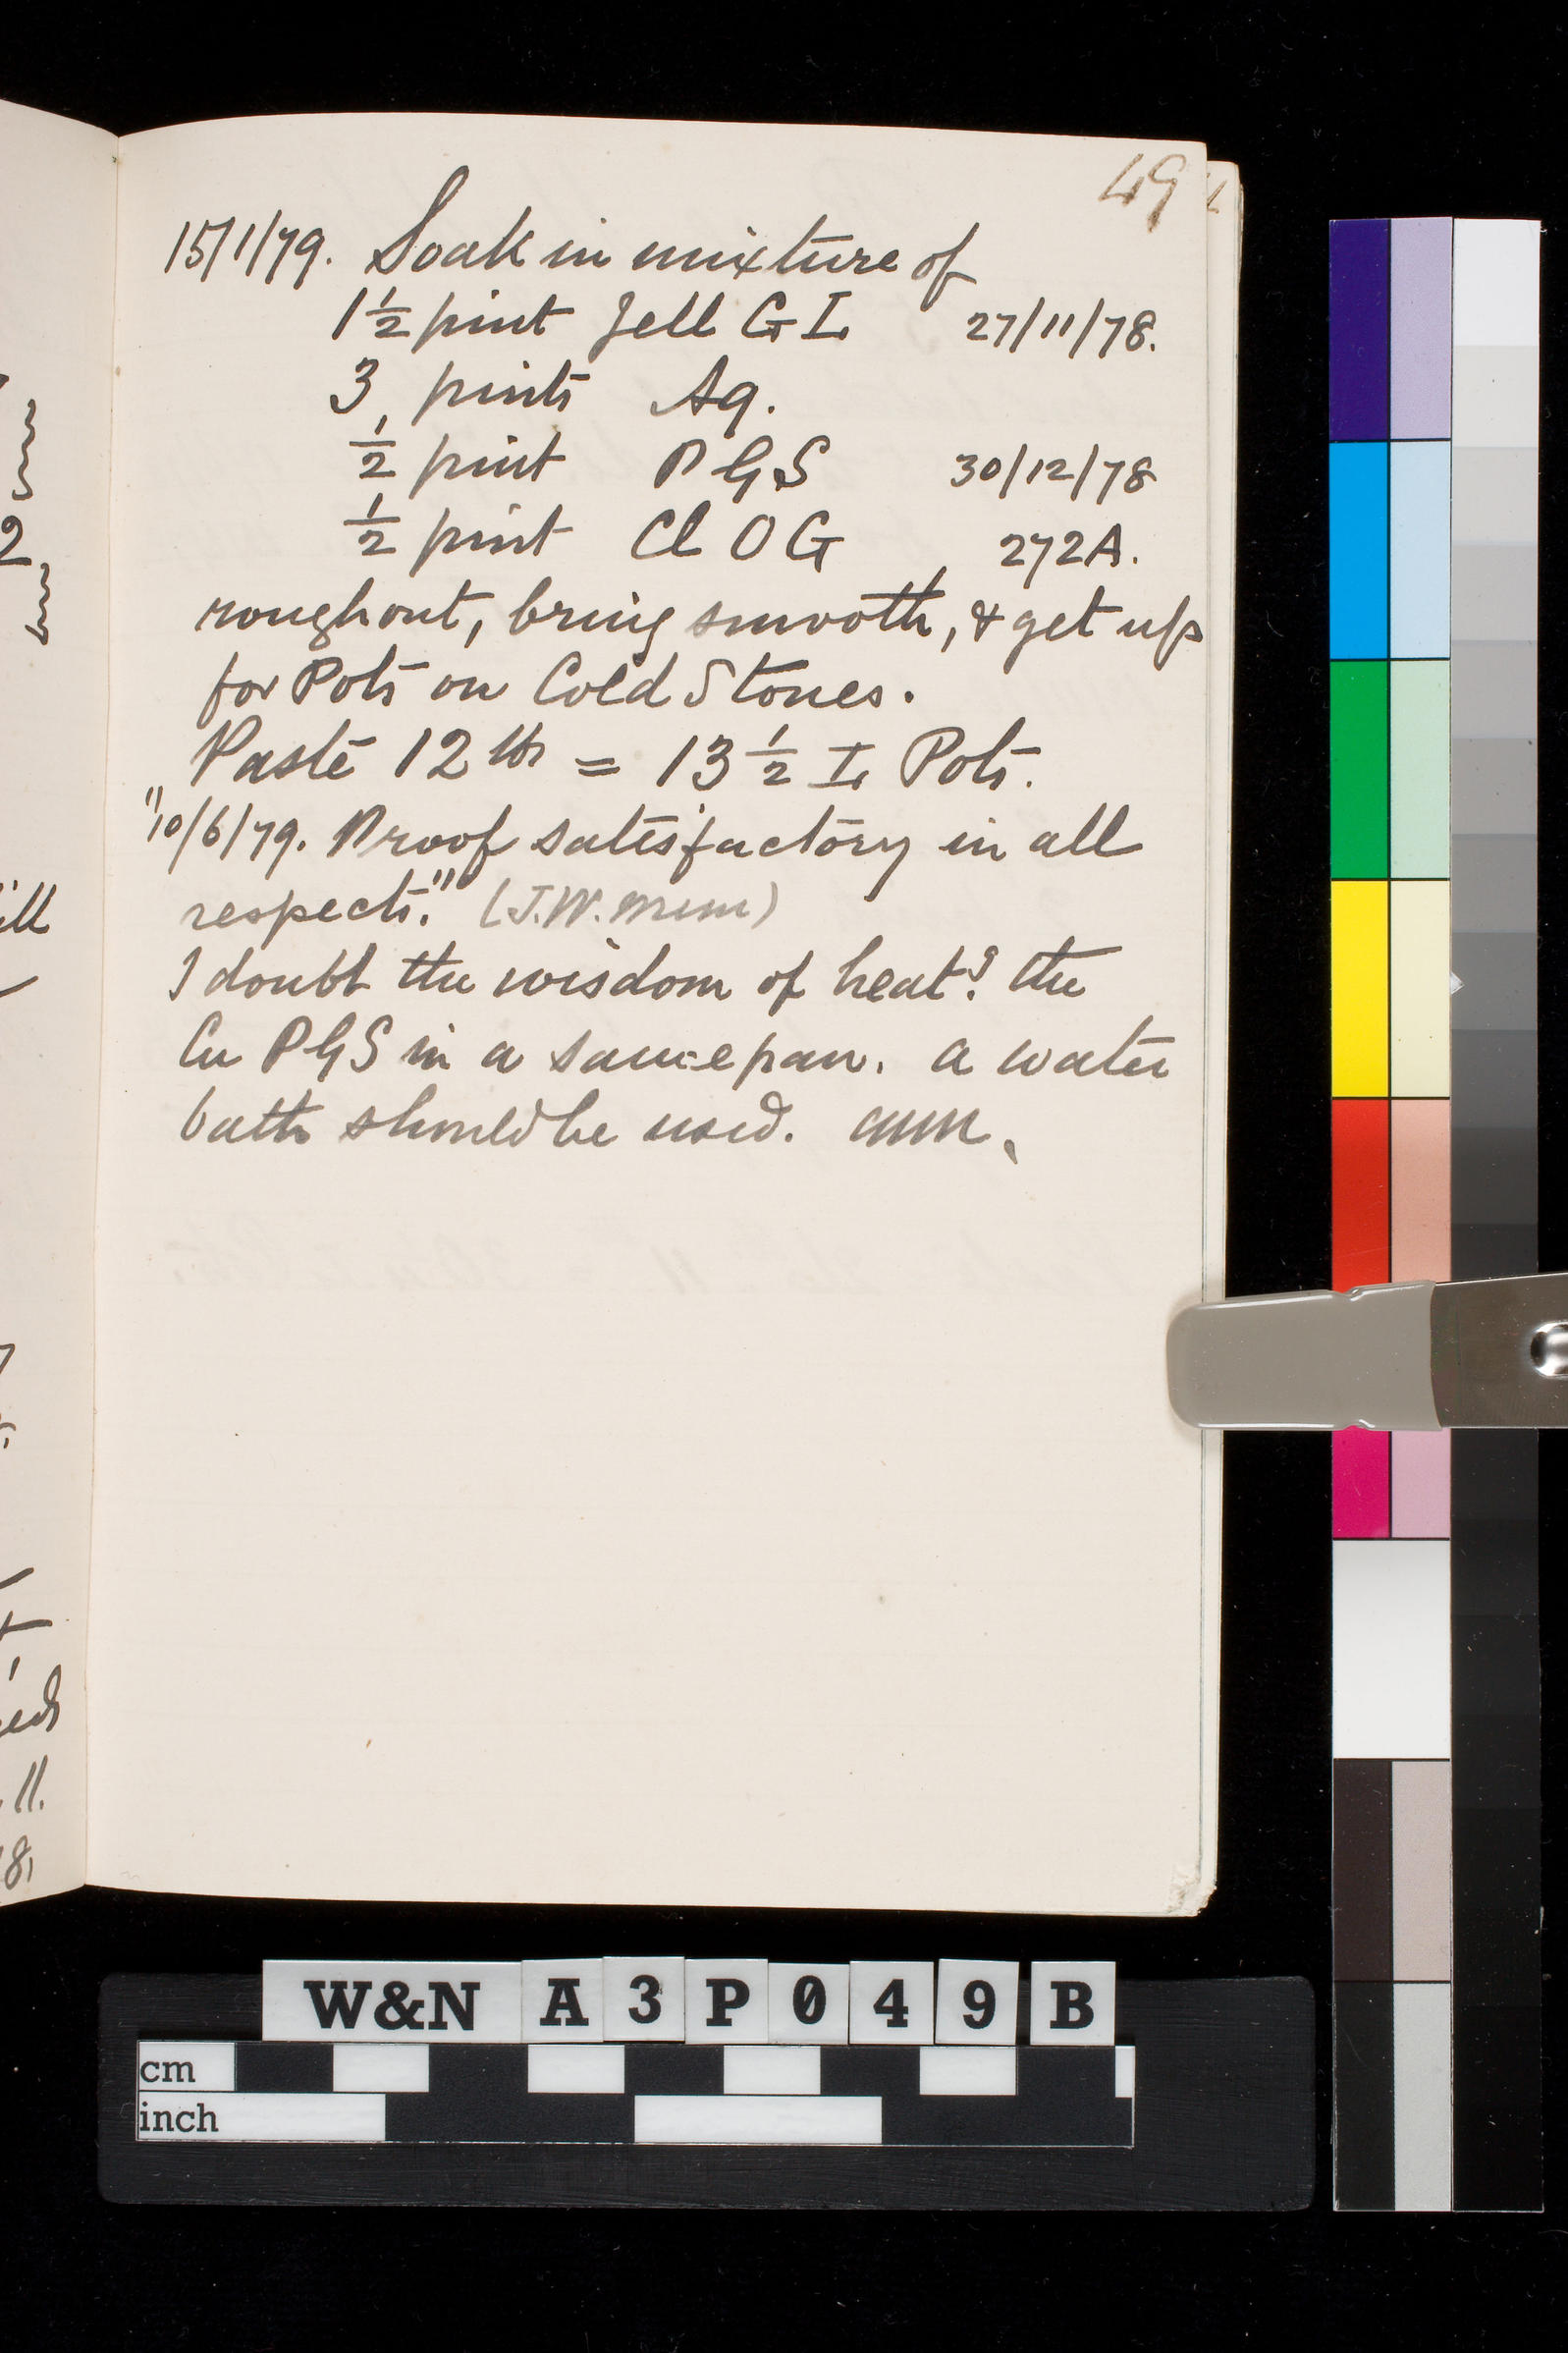 49
15/1/79. Soak in mixture of
1½ pint Jell G I 27/11/78.
3 pints Aq.
½ pint P G S 30/12/78
½ pint Cl O G 272A.
rough out, bring smooth, & get up
for Pots on Cold Stones.
Paste 12 lbs = 13½ I Pots.
"10/6/79. Proof satisfactory in all
respects." (J.W. mem)
I doubt the wisdom of heatg. the
Cu P G S in a saucepan. a water
bath should be used.
W&N A3P049B
cm
inch